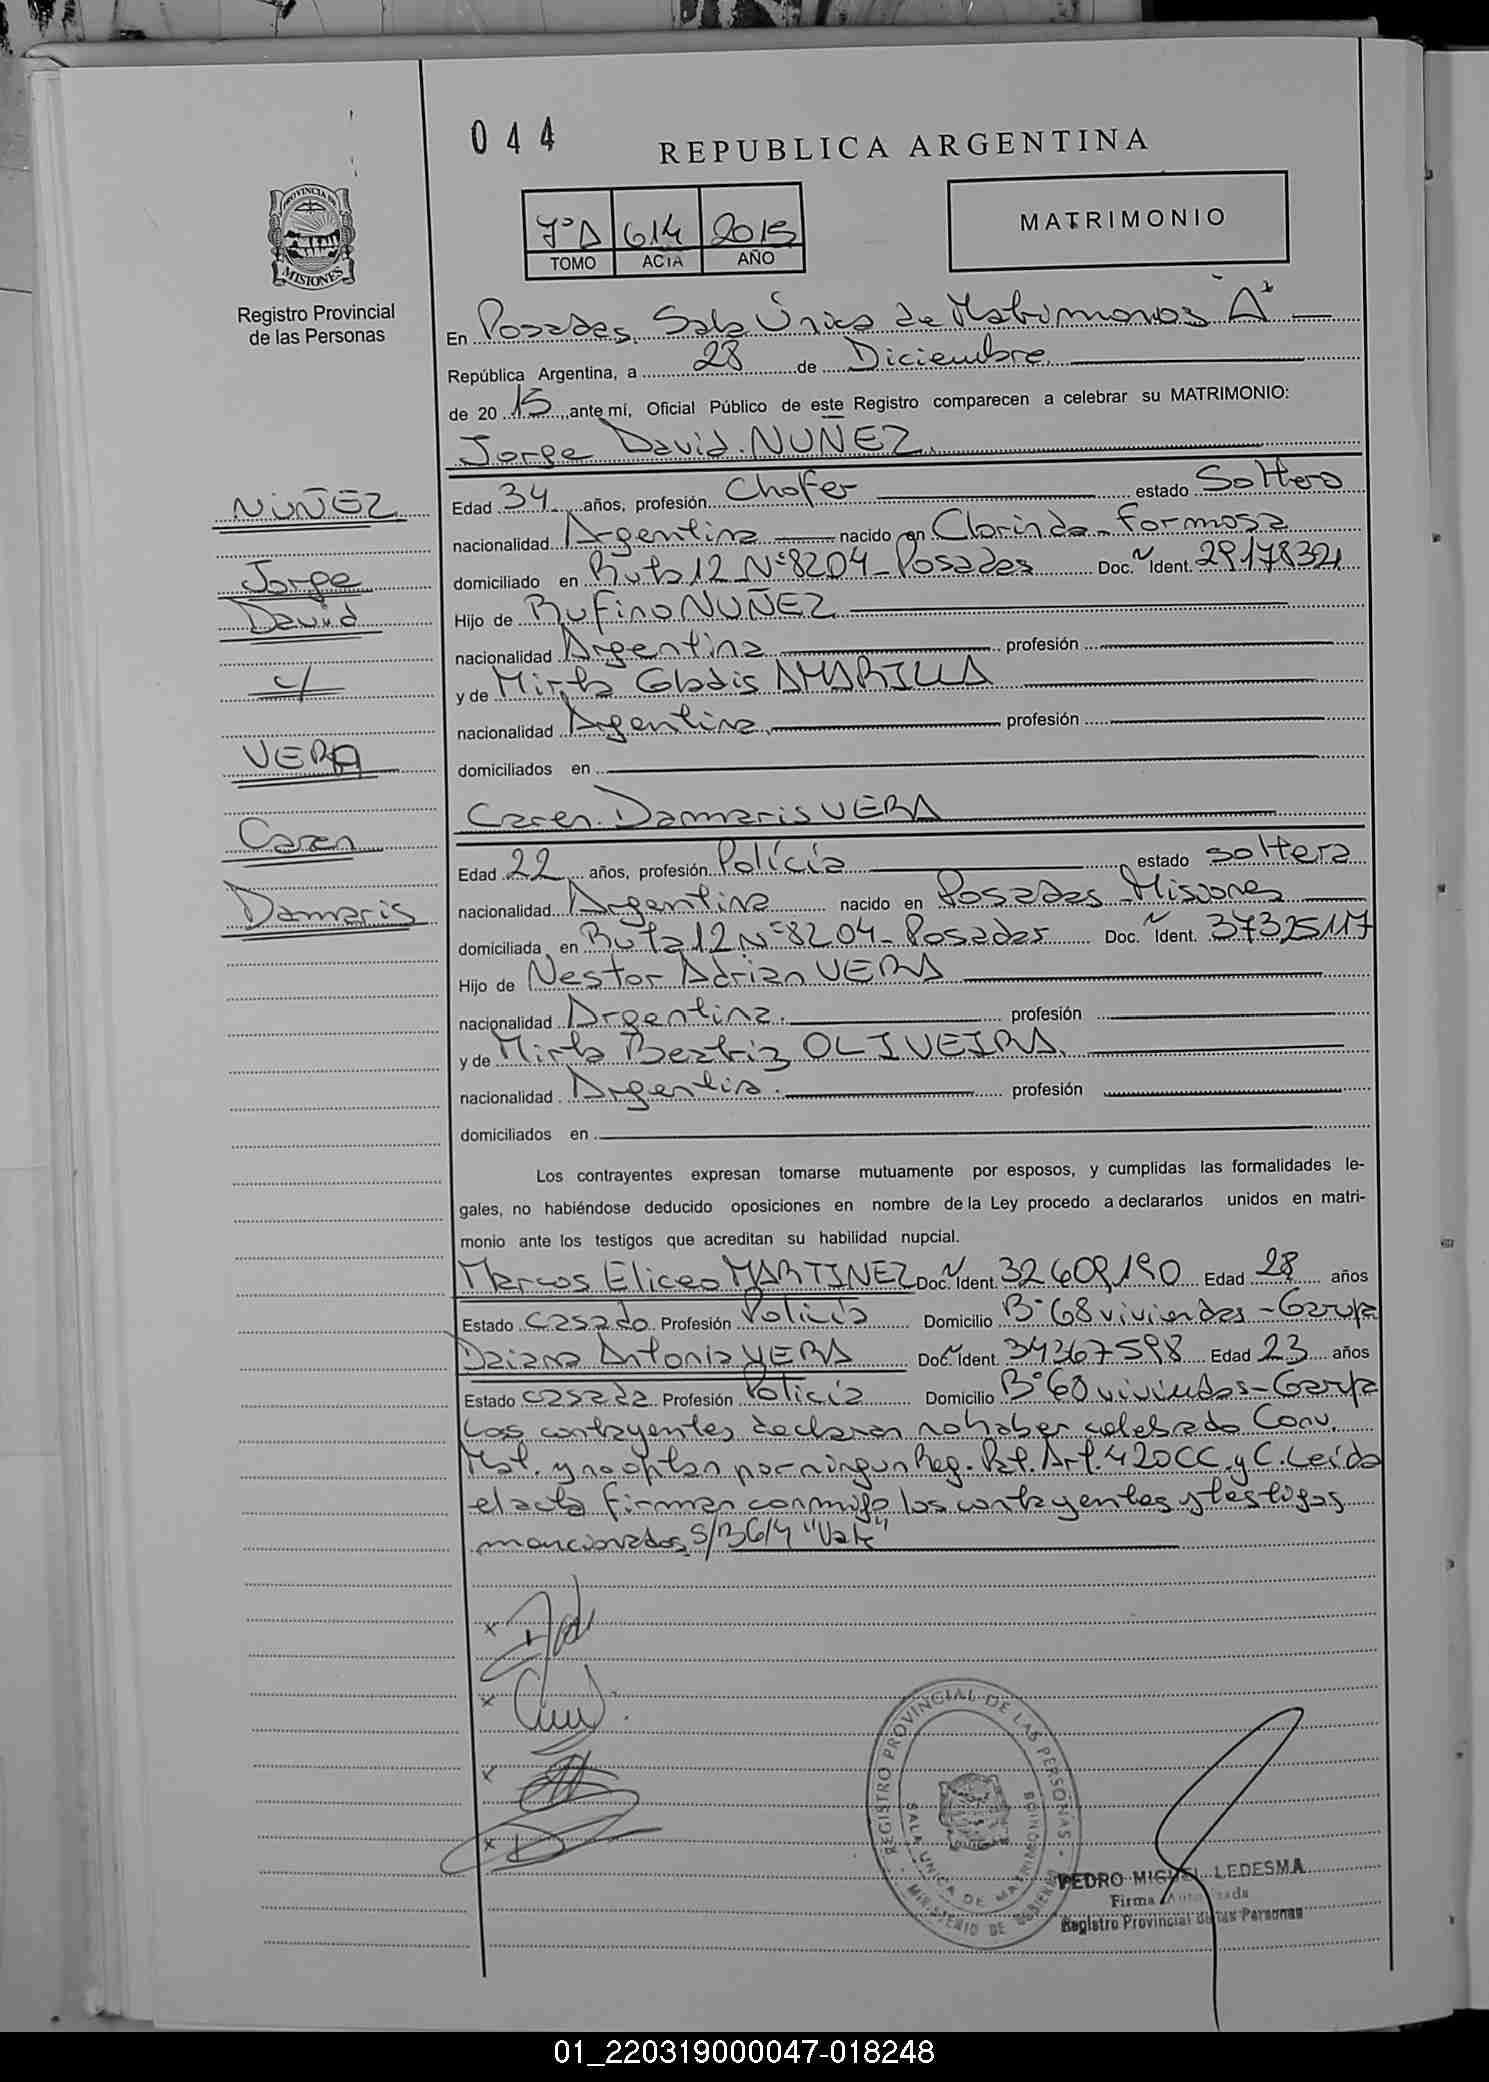 044
REPUBLICA ARGENTINA
PROVINCIA DE
MISIONES
Registro Provincial
de las Personas
7°A 614 2015
TOMO ACTA AÑO
MATRIMONIO
En Posadas, Sala Única de Matrimonios "A"
República Argentina, a 28 de Diciembre
de 2015, ante mí, Oficial Público de este Registro comparecen a celebrar su MATRIMONIO:
Jorge David NUÑEZ
NUÑEZ
Jorge
David
y
VERA
Caren
Damaris
Edad 34 años, profesión Chofer estado Soltero
nacionalidad Argentina nacido en Clorinda - Formosa
domiciliado en Ruta 12 N°8204 - Posadas Doc. Ident. 29178321
Hijo de Rufino NUÑEZ
nacionalidad Argentina profesión
y de Mirta Gladis AMARILLA
nacionalidad Argentina profesión
domiciliados en
Caren Damaris VERA
Edad 22 años, profesión Policía estado soltera
nacionalidad Argentina nacido en Posadas - Misiones
domiciliada en Ruta 12 N°8204 - Posadas Doc. Ident. 37325117
Hijo de Nestor Adrian VERA
nacionalidad Argentina profesión
y de Mirta Beatriz OLIVEIRA
nacionalidad Argentia profesión
domiciliados en
Los contrayentes expresan tomarse mutuamente por esposos, y cumplidas las formalidades le-
gales, no habiéndose deducido oposiciones en nombre de la Ley procedo a declararlos unidos en matri-
monio ante los testigos que acreditan su habilidad nupcial.
Marcos Eliceo MARTINEZ Doc. Ident. 32609190 Edad 28 años
Estado casado Profesión Policía Domicilio B°68 viviendas - Garupa
Daiana Antonia VERA Doc. Ident. 34367598 Edad 23 años
Estado casada Profesión Policía Domicilio B°68 viviendas - Garupa
Los contrayentes declaran no haber celebrado Conv.
Mat. y no optan por ningun Reg. Pat. Art. 420 CC y C. Leída
el acta firman conmigo los contrayentes y testigos
mencionados S/B 614 "Vale"
x
x
x
x
REGISTRO PROVINCIAL DE LAS PERSONAS
SALA UNICA DE MATRIMONIOS
MINISTERIO DE GOBIERNO
PEDRO MIGUEL LEDESMA
Firma Autorizada
Registro Provincial de las Personas
01_220319000047-018248